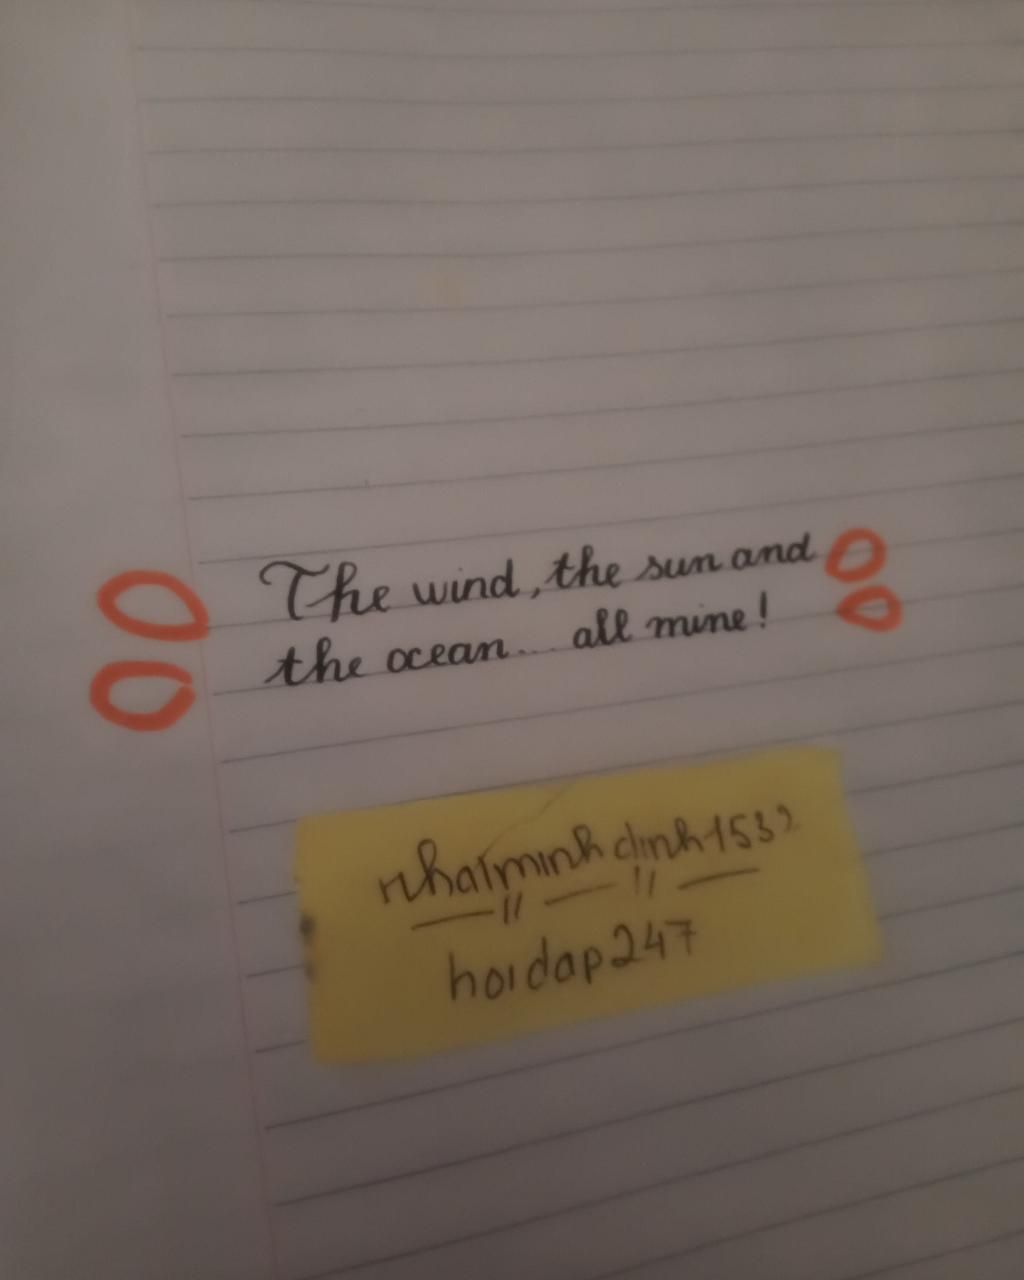 The wind, the sun and
the ocean... all mine!
nhatminhdinh1532
hoidap247